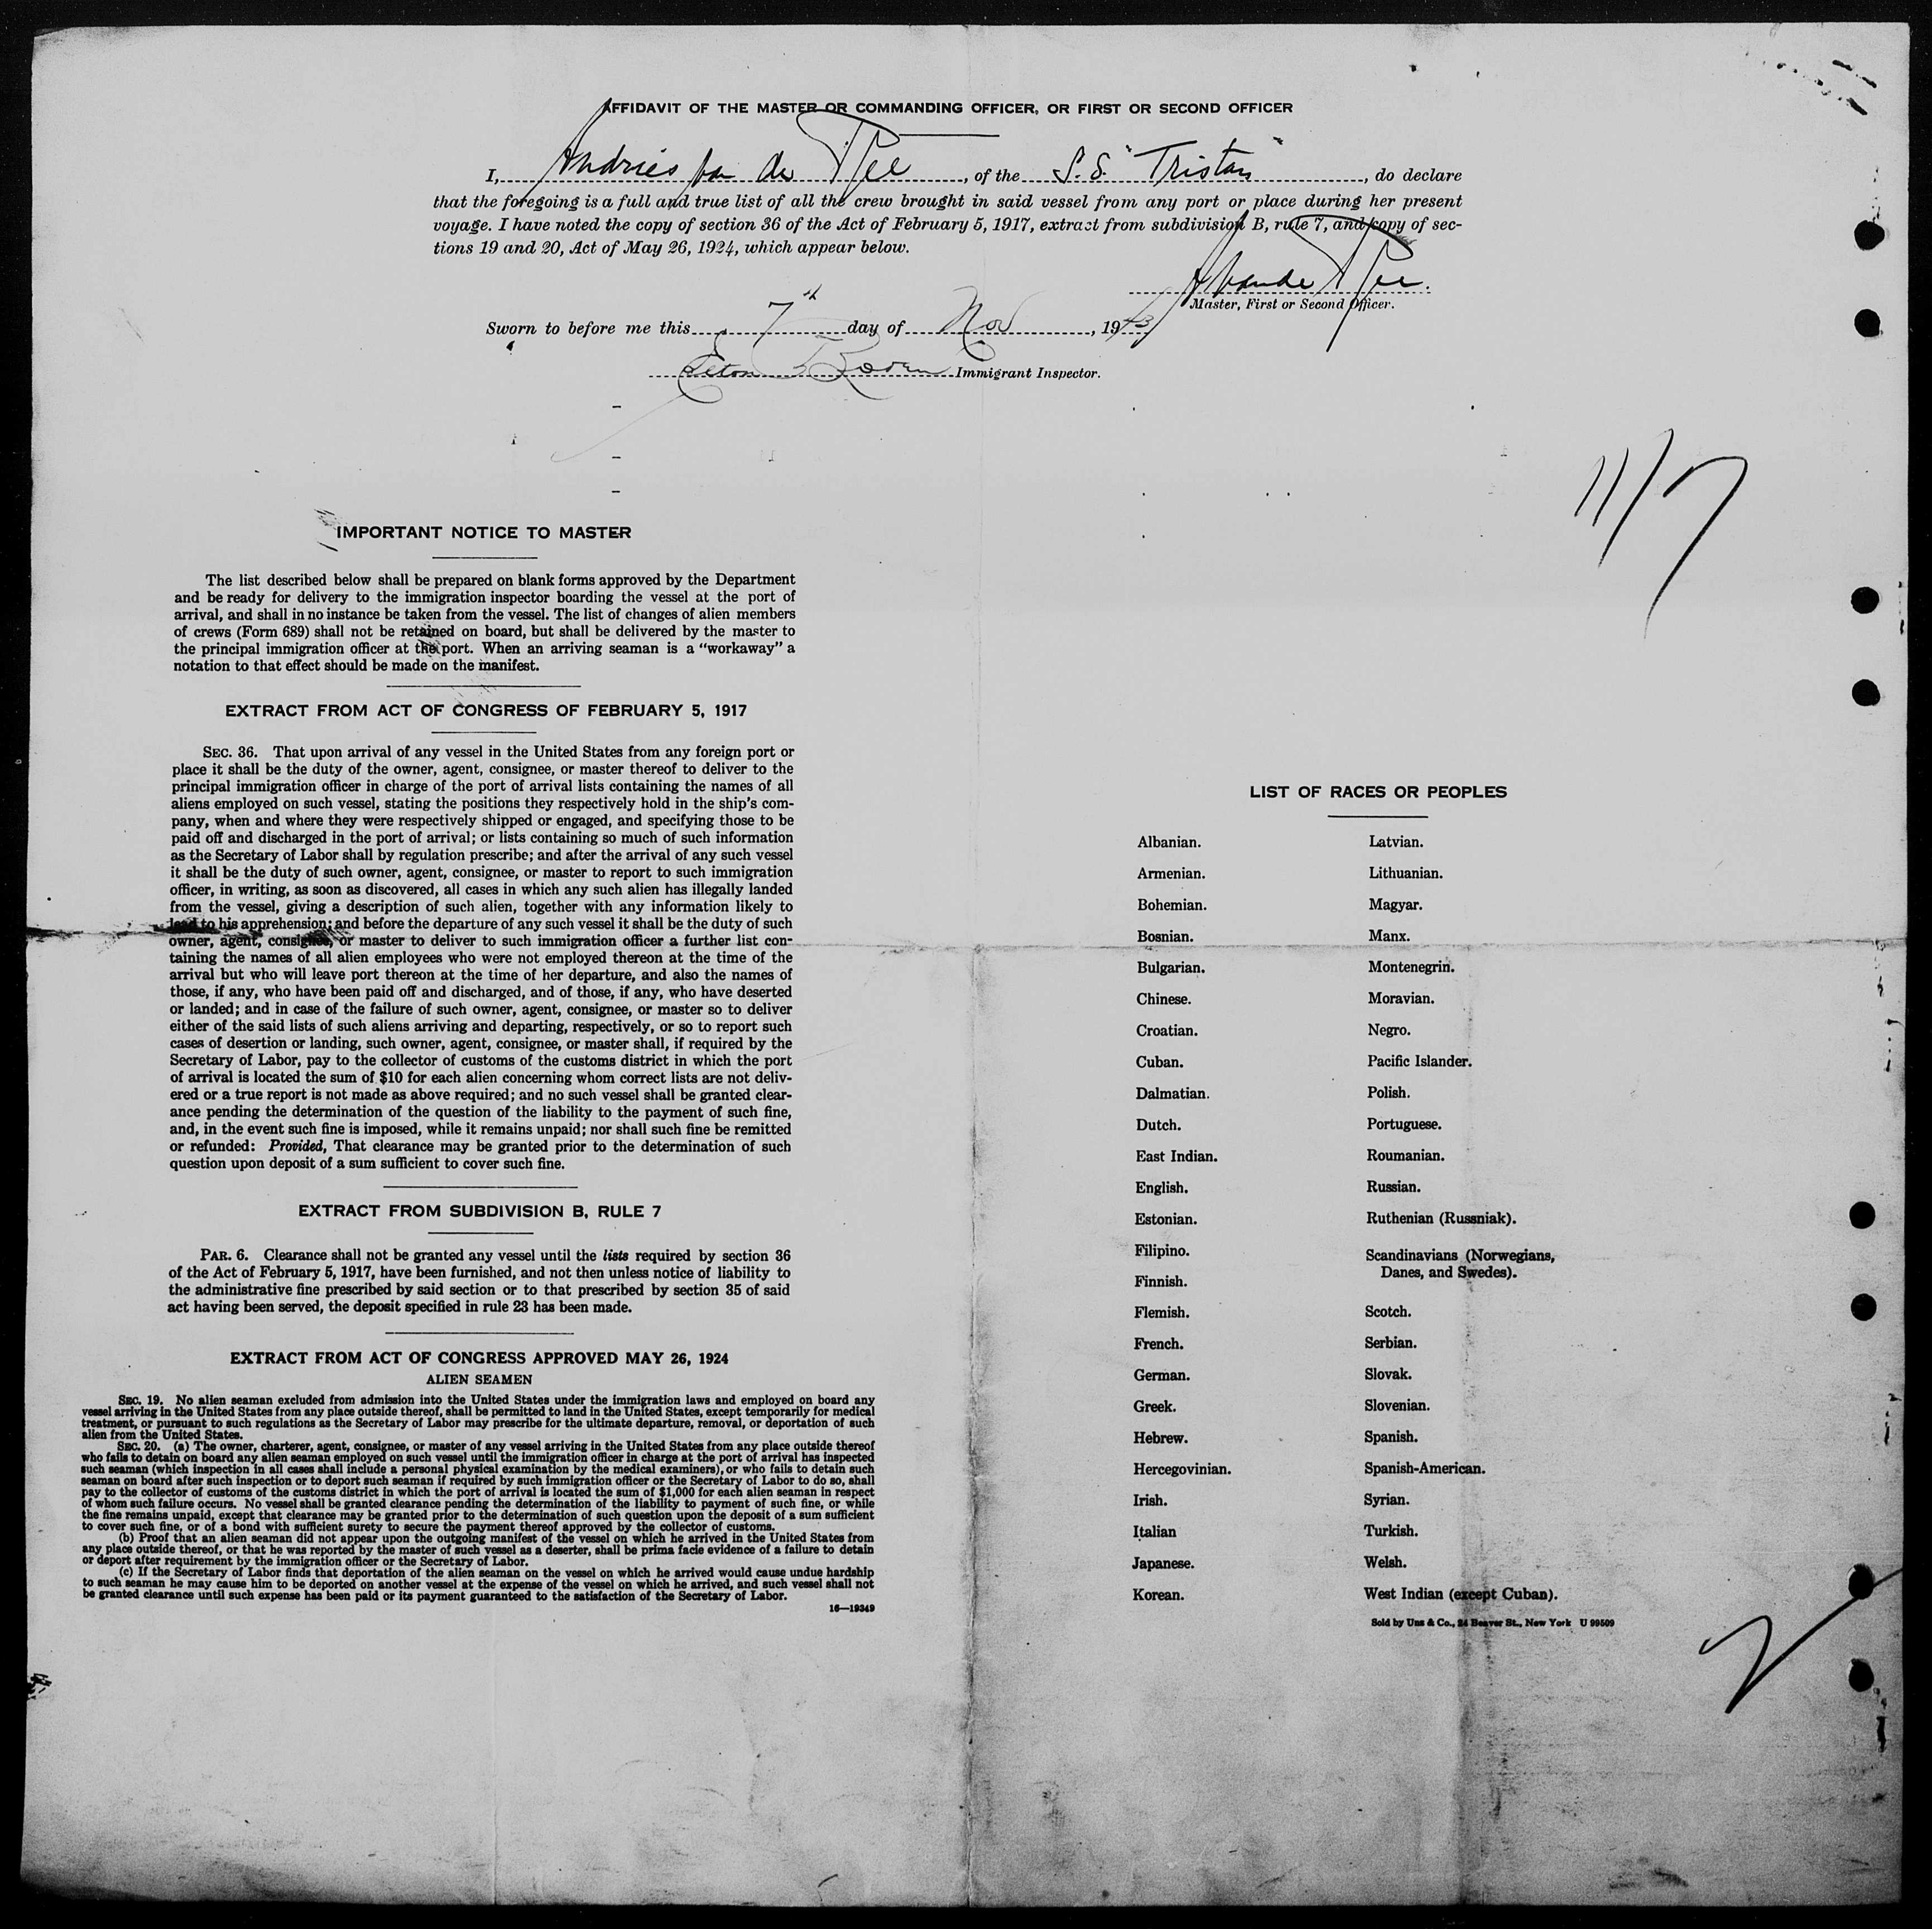 AFFIDAVIT OF THE MASTER OR COMMANDING OFFICER, OR FIRST OR SECOND OFFICER
I, Andries van der Plee, of the S.S. "Tristan", do declare
that the foregoing is a full and true list of all the crew brought in said vessel from any port or place during her present
voyage. I have noted the copy of section 36 of the Act of February 5, 1917, extract from subdivision B, rule 7, and copy of sec-
tions 19 and 20, Act of May 26, 1924, which appear below.
Master, First or Second Officer.
Sworn to before me this 7th day of Nov, 1943
Immigrant Inspector.
11/7
IMPORTANT NOTICE TO MASTER
The list described below shall be prepared on blank forms approved by the Department
and be ready for delivery to the immigration inspector boarding the vessel at the port of
arrival, and shall in no instance be taken from the vessel. The list of changes of alien members
of crews (Form 689) shall not be retained on board, but shall be delivered by the master to
the principal immigration officer at the port. When an arriving seaman is a "workaway" a
notation to that effect should be made on the manifest.
EXTRACT FROM ACT OF CONGRESS OF FEBRUARY 5, 1917
SEC. 36. That upon arrival of any vessel in the United States from any foreign port or
place it shall be the duty of the owner, agent, consignee, or master thereof to deliver to the
principal immigration officer in charge of the port of arrival lists containing the names of all
aliens employed on such vessel, stating the positions they respectively hold in the ship's com-
pany, when and where they were respectively shipped or engaged, and specifying those to be
paid off and discharged in the port of arrival; or lists containing so much of such information
as the Secretary of Labor shall by regulation prescribe; and after the arrival of any such vessel
it shall be the duty of such owner, agent, consignee, or master to report to such immigration
officer, in writing, as soon as discovered, all cases in which any such alien has illegally landed
from the vessel, giving a description of such alien, together with any information likely to
lead to his apprehension; and before the departure of any such vessel it shall be the duty of such
owner, agent, consignee, or master to deliver to such immigration officer a further list con-
taining the names of all alien employees who were not employed thereon at the time of the
arrival but who will leave port thereon at the time of her departure, and also the names of
those, if any, who have been paid off and discharged, and of those, if any, who have deserted
or landed; and in case of the failure of such owner, agent, consignee, or master so to deliver
either of the said lists of such aliens arriving and departing, respectively, or so to report such
cases of desertion or landing, such owner, agent, consignee, or master shall, if required by the
Secretary of Labor, pay to the collector of customs of the customs district in which the port
of arrival is located the sum of $10 for each alien concerning whom correct lists are not deliv-
ered or a true report is not made as above required; and no such vessel shall be granted clear-
ance pending the determination of the question of the liability to the payment of such fine,
and, in the event such fine is imposed, while it remains unpaid; nor shall such fine be remitted
or refunded: Provided, That clearance may be granted prior to the determination of such
question upon deposit of a sum sufficient to cover such fine.
EXTRACT FROM SUBDIVISION B, RULE 7
PAR. 6. Clearance shall not be granted any vessel until the lists required by section 36
of the Act of February 5, 1917, have been furnished, and not then unless notice of liability to
the administrative fine prescribed by said section or to that prescribed by section 35 of said
act having been served, the deposit specified in rule 23 has been made.
EXTRACT FROM ACT OF CONGRESS APPROVED MAY 26, 1924
ALIEN SEAMEN
SEC. 19. No alien seaman excluded from admission into the United States under the immigration laws and employed on board any
vessel arriving in the United States from any place outside thereof, shall be permitted to land in the United States, except temporarily for medical
treatment, or pursuant to such regulations as the Secretary of Labor may prescribe for the ultimate departure, removal, or deportation of such
alien from the United States.
SEC. 20. (a) The owner, charterer, agent, consignee, or master of any vessel arriving in the United States from any place outside thereof
who fails to detain on board any alien seaman employed on such vessel until the immigration officer in charge at the port of arrival has inspected
such seaman (which inspection in all cases shall include a personal physical examination by the medical examiners), or who fails to detain such
seaman on board after such inspection or to deport such seaman if required by such immigration officer or the Secretary of Labor to do so, shall
pay to the collector of customs of the customs district in which the port of arrival is located the sum of $1,000 for each alien seaman in respect
of whom such failure occurs. No vessel shall be granted clearance pending the determination of the liability to payment of such fine, or while
the fine remains unpaid, except that clearance may be granted prior to the determination of such question upon the deposit of a sum sufficient
to cover such fine, or of a bond with sufficient surety to secure the payment thereof approved by the collector of customs.
(b) Proof that an alien seaman did not appear upon the outgoing manifest of the vessel on which he arrived in the United States from
any place outside thereof, or that he was reported by the master of such vessel as a deserter, shall be prima facie evidence of a failure to detain
or deport after requirement by the immigration officer or the Secretary of Labor.
(c) If the Secretary of Labor finds that deportation of the alien seaman on the vessel on which he arrived would cause undue hardship
to such seaman he may cause him to be deported on another vessel at the expense of the vessel on which he arrived, and such vessel shall not
be granted clearance until such expense has been paid or its payment guaranteed to the satisfaction of the Secretary of Labor.
16—19349
LIST OF RACES OR PEOPLES
Albanian.
Armenian.
Bohemian.
Bosnian.
Bulgarian.
Chinese.
Croatian.
Cuban.
Dalmatian.
Dutch.
East Indian.
English.
Estonian.
Filipino.
Finnish.
Flemish.
French.
German.
Greek.
Hebrew.
Hercegovinian.
Irish.
Italian
Japanese.
Korean.
Latvian.
Lithuanian.
Magyar.
Manx.
Montenegrin.
Moravian.
Negro.
Pacific Islander.
Polish.
Portuguese.
Roumanian.
Russian.
Ruthenian (Russniak).
Scandinavians (Norwegians,
Danes, and Swedes).
Scotch.
Serbian.
Slovak.
Slovenian.
Spanish.
Spanish-American.
Syrian.
Turkish.
Welsh.
West Indian (except Cuban).
Sold by Unz & Co., 24 Beaver St., New York U 99509